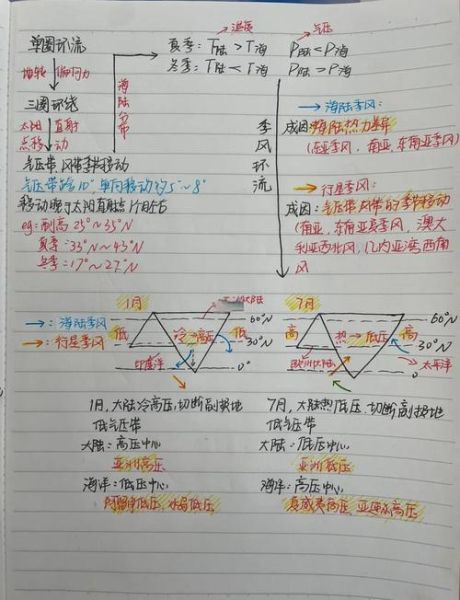 温度 气压
单圈环流
夏季：T陆＞T海 P陆＜P海
冬季：T陆＜T海 P陆＞P海
地转偏向力
海陆分布
三圈环绕
太阳直射点移动
季风环流
→海陆季风：
成因：海陆热力差异
(东亚季风，南亚，东南亚季风)
气压带、风带季节移动
气压带跨10°，单向移动约5°~8°
移动晚于太阳直射点1个月左右
eg：副高25°~35°N
夏季：33°N~43°N
冬季：17°~27°N
→行星季风：
成因：气压带风带的季节移动
(南亚，东南亚夏季风，澳大
利亚西北风，几内亚湾西南
风
→：海陆季风
→：行星季风
1月
60°N
低 冷→高压 低
30°N
印度洋
0°
7月
60°N
高 热→低压 高
30°N
大陆
太平洋
0°
1月，大陆冷高压，切断副极地
低气压带
大陆：高压中心
亚洲高压
海洋：低压中心
阿留申低压，冰岛低压
7月，大陆热低压，切断副极地
大陆：低压中心
亚洲低压
海洋：高压中心
夏威夷高压，亚速尔高压